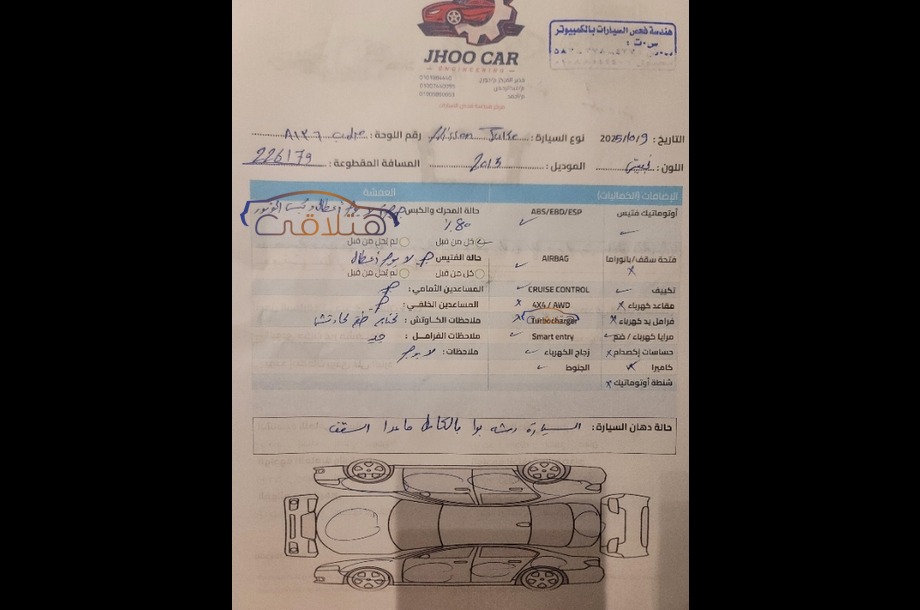 JHOO CAR
ENGINEERING
هندسة فحص السيارات بالكمبيوتر
س.ت :
التاريخ : 2025/10/9 نوع السيارة : Nissan Juke رقم اللوحة :
اللون : الموديل : 2013 المسافة المقطوعة : 226179
الإضافات (الكماليات) العفشة
أوتوماتيك فتيس ABS/EBD/ESP حالة المحرك والكبس
٪٨٠
هتلاقي
كل من قبل لم يُحل من قبل
فتحة سقف/بانوراما AIRBAG حالة الفتيس لا يوجد أعطال
كل من قبل لم يُحل من قبل
تكييف CRUISE CONTROL المساعدين الأمامي :
مقاعد كهرباء 4X4 / AWD المساعدين الخلفي :
فرامل يد كهرباء Turbocharger ملاحظات الكاوتش :
مرايا كهرباء / ضم Smart entry ملاحظات الفرامل : جيد
حساسات إكصدام زجاج الكهرباء ملاحظات : لا يوجد
كاميرا الجنوط
شنطة أوتوماتيك
حالة دهان السيارة : السيارة رشه بوا بالكامل ماعدا السقف